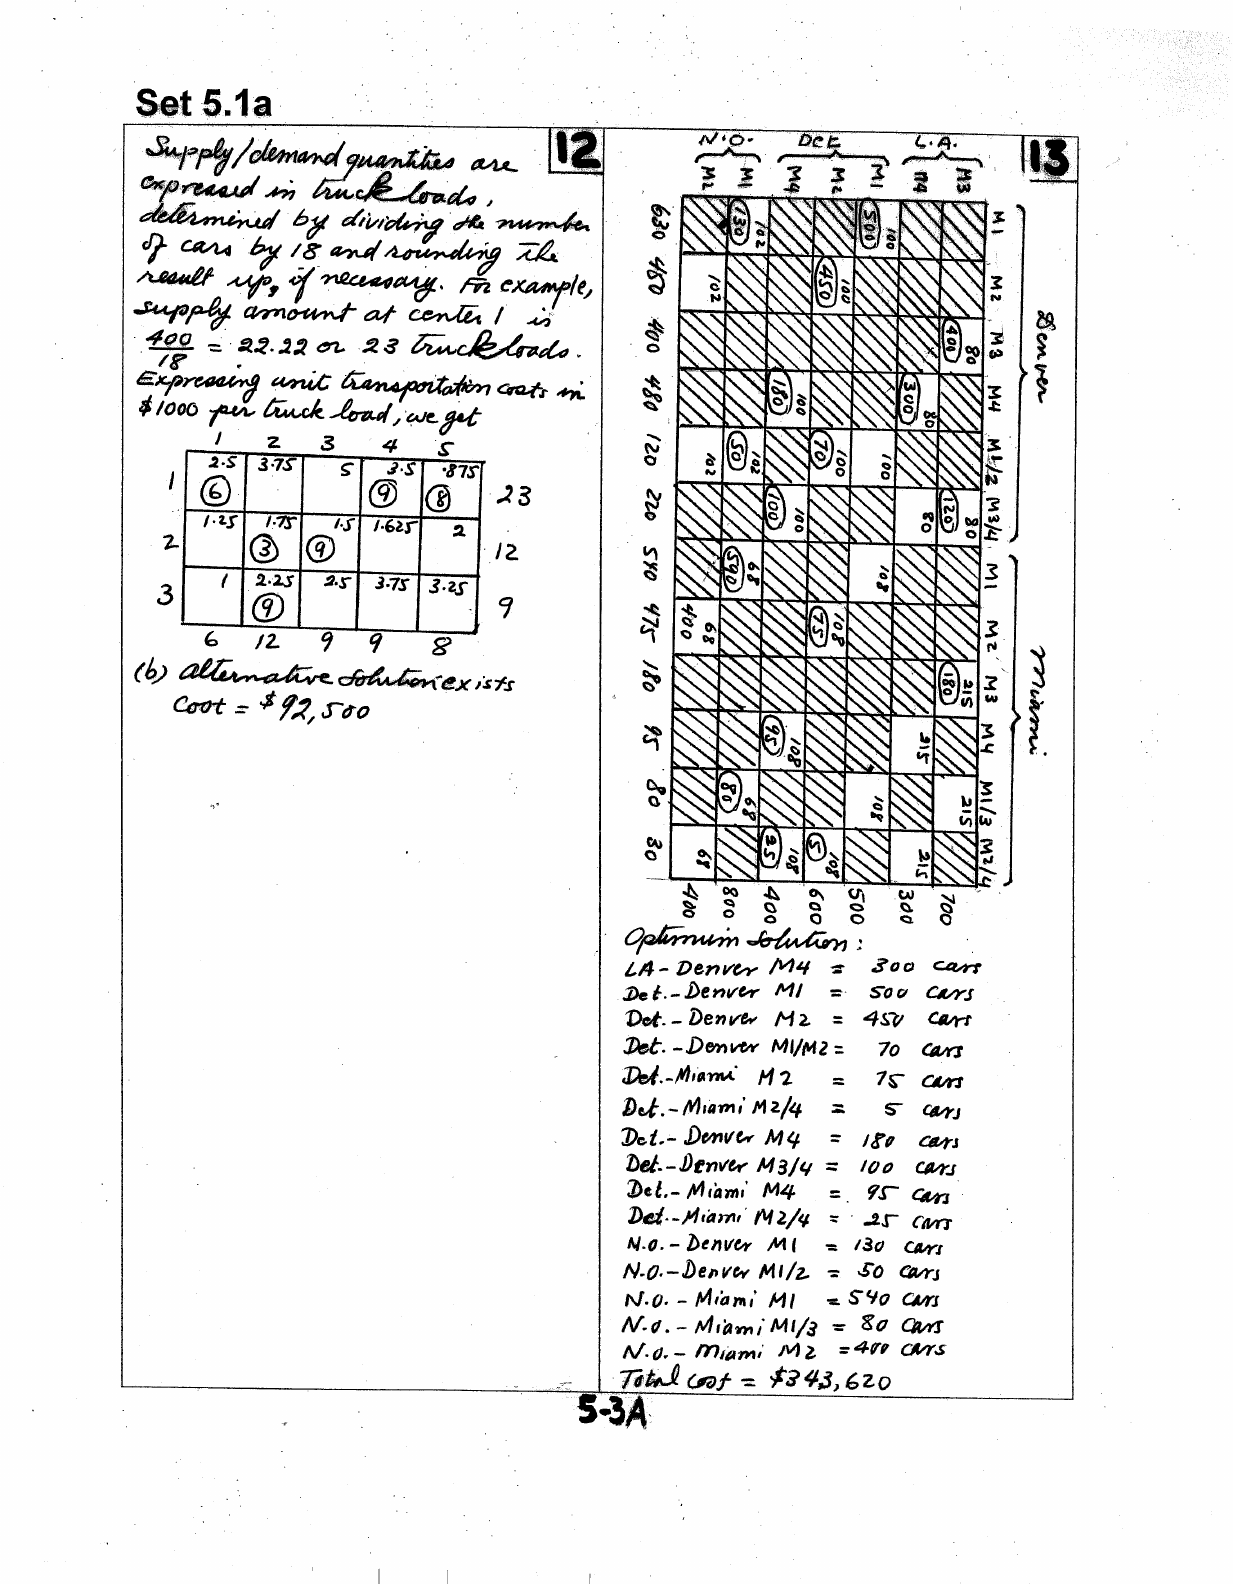 Set 5.1a
12
Supply/demand quantities are
expressed in truck loads,
determined by dividing the number
of cars by 18 and rounding the
result up, if necessary. For example,
supply amount at center 1 is
400/18 = 22.22 or 23 truck loads.
Expressing unit transportation costs in
$1000 per truck load, we get
1 2 3 4 5
1 2.5 3.75 5 3.5 .875
6 9 8 23
2 1.25 1.75 1.5 1.625 2
3 9 12
3 1 2.25 2.5 3.75 3.25
9 9
6 12 9 9 8
(b) Alternative solution exists
Cost = $92,500
13
N.O. DET L.A.
M2 M1 M4 M2 M1 M4 M3
630 130 102 500 100 M1
480 102 450 100 M2
400 400 80 M3
480 180 100 300 80 M4
120 102 50 102 70 100 100 M1/2
220 100 100 80 120 80 M3/4
540 540 68 108 M1
475 400 68 75 108 M2
180 180 215 M3
95 95 108 215 M4
80 80 68 108 215 M1/3
30 68 25 108 5 108 215 M2/4
400 800 400 600 500 300 700
Denver
Miami
Optimum solution:
LA - Denver M4 = 300 cars
Det. - Denver M1 = 500 cars
Det. - Denver M2 = 450 cars
Det. - Denver M1/M2 = 70 cars
Det. - Miami M2 = 75 cars
Det. - Miami M2/4 = 5 cars
Det. - Denver M4 = 180 cars
Det. - Denver M3/4 = 100 cars
Det. - Miami M4 = 95 cars
Det. - Miami M2/4 = 25 cars
N.O. - Denver M1 = 130 cars
N.O. - Denver M1/2 = 50 cars
N.O. - Miami M1 = 540 cars
N.O. - Miami M1/3 = 80 cars
N.O. - Miami M2 = 400 cars
Total cost = $343,620
5-3A